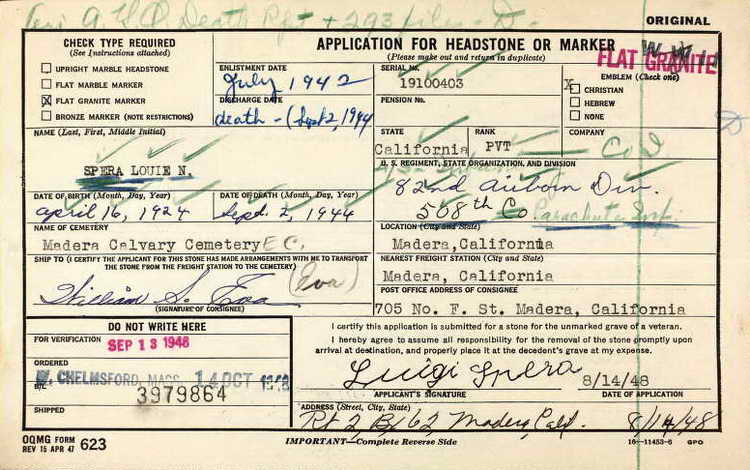 A.G.O. Death Rpt + 293 files - D.
ORIGINAL
CHECK TYPE REQUIRED
(See Instructions attached)
UPRIGHT MARBLE HEADSTONE
FLAT MARBLE MARKER
X FLAT GRANITE MARKER
BRONZE MARKER (NOTE RESTRICTIONS)
APPLICATION FOR HEADSTONE OR MARKER
(Please make out and return in duplicate)
W.W. II
FLAT GRANITE
ENLISTMENT DATE
July, 1942
DISCHARGE DATE
death - (Sept 2, 1944
SERIAL No.
19100403
PENSION No.
EMBLEM (Check one)
X CHRISTIAN
HEBREW
NONE
STATE
California
RANK
PVT
COMPANY
Co D
NAME (Last, First, Middle Initial)
SPERA LOUIE N.
U. S. REGIMENT, STATE ORGANIZATION, AND DIVISION
82nd airborn Div.
508th Co Parachute Inf.
DATE OF BIRTH (Month, Day, Year)
april 16, 1924
DATE OF DEATH (Month, Day, Year)
Sept. 2, 1944
NAME OF CEMETERY
Madera Calvary Cemetery E C.
LOCATION (City and State)
Madera, California
SHIP TO (I CERTIFY THE APPLICANT FOR THIS STONE HAS MADE ARRANGEMENTS WITH ME TO TRANSPORT
THE STONE FROM THE FREIGHT STATION TO THE CEMETERY)
William S. Eva (Eva)
(SIGNATURE OF CONSIGNEE)
NEAREST FREIGHT STATION (City and State)
Madera, California
POST OFFICE ADDRESS OF CONSIGNEE
705 No. F. St. Madera, California
DO NOT WRITE HERE
FOR VERIFICATION
SEP 13 1948
ORDERED
W. CHELMSFORD, MASS. 14 OCT 1948
3979864
SHIPPED
I certify this application is submitted for a stone for the unmarked grave of a veteran.
I hereby agree to assume all responsibility for the removal of the stone promptly
upon arrival at destination, and properly place it at the decedent's grave at my expense.
Luigi Spera
8/14/48
APPLICANT'S SIGNATURE
DATE OF APPLICATION
ADDRESS (Street, City, State)
Rt 2, B/62 Madera, Calif. 8/14/48
OQMG FORM
REV 15 APR 47
623
IMPORTANT—Complete Reverse Side
16—11453-6 GPO